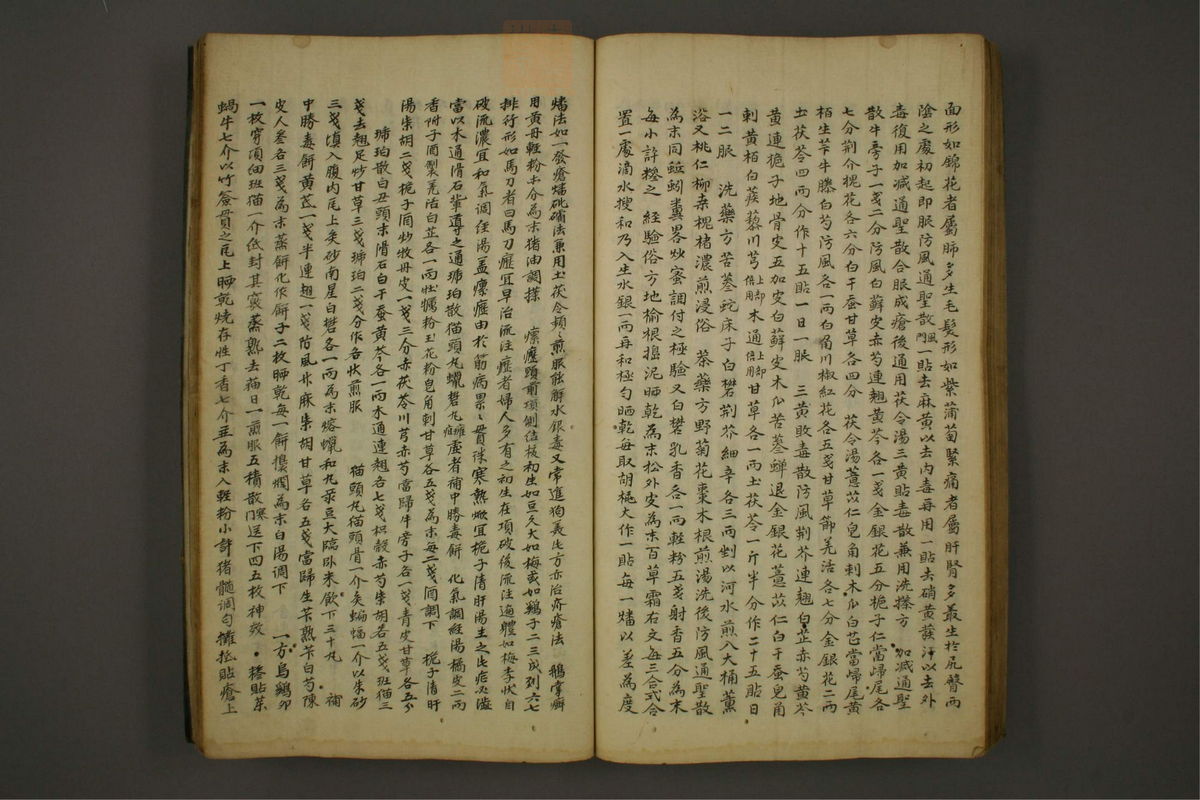 面形如錦花者屬肺多生毛髮形如紫蒲萄緊痛者屬肝腎多最生於尻臀兩
陰之處初起即服防風通聖散䦕風一貼去麻黃以去內毒每用一貼去硝黃發汗以去外
毒復用加減通聖散合服成瘡後通用茯令湯三黃貼毒散兼用洗搽方 加減通聖
散牛旁子一戔二分防風白蘚皮赤芍連翹黃芩各一戔金銀花五分梔子仁當歸尾各
七分荊介槐花各六分白干蚕甘草各四分 茯令湯薏苡仁皂角刺木瓜白芷當㱕尾黃
栢生芐牛膝白芍防風各一兩白蜀川椒紅花各五戔甘草節羌活各七分金銀花二兩
土茯苓四兩分作十五貼一日一服 三黃敗毒散防風荊芥連翹白芷赤芍黃芩
黃連梔子地骨皮五加皮白蘚皮木瓜苦葠蟬退金銀花薏苡仁白干蚕皂角
刺黃栢白蒺藜川芎上却倍用木通上却倍用甘草各一兩土茯苓一斤半分作二十五貼日
一二服 洗藥方苦葠蛇床子白礬荊芥細辛各三兩剉以河水煎入大桶薰
浴又桃仁柳桒槐楮濃煎浸俗 搽藥方野菊花棗木根煎湯洗後防風通聖散
為末同蚯蚓糞畧炒蜜調付之極驗又白礬乳香各一兩輕粉五戔射香五分為末
每小許糝之 經驗俗方地榆根搗泥晒乾為末松外皮為末百草霜右文每三合式合
置一處滴水搜和乃入生水銀一兩再和極勻晒乾每取胡桃大作一貼每一燔以差為度
燔法如一發瘡燔砒礵法兼用土茯令頻〻煎服能解水銀毒又常進狗羙此方亦治疥瘡法 鵝掌癬
用黃丹輕粉木分為末猪油調搽 瘰癧頸前項側結核初生如豆久大如梅或如鷄子二三或列六七
排行形如馬刀者曰馬刀癧宜早治流注症者婦人多有之初生在項破後流注遍軆如梅李狀自
破流濃宜和氣調經湯盖瘰癧由於筋病累〻貫珠寒熱焮宜梔子清肝湯主之此症必澁
當以木通滑石輩導之通琥珀散猫頭丸蠟礬丸癰疽虛者補中勝毒餅 化氣調經湯橘皮二兩
香附子酒製羌活白芷各一兩牡蠣粉玉花粉皂角刺甘草各五戔為末每二戔酒調下 梔子清肝
湯柴胡二戔梔子同炒牧丹皮一戔三分赤茯苓川芎赤芍當歸牛旁子各一戔青皮甘草各五分
琥珀散白丑頭末滑石白干蚕黃芩各一兩木通連翹各七戔枳殼赤芍柴胡各五戔班猫三
戔去翹足炒甘草三戔琥珀二戔分作各狀煎服 猫頭丸猫頭骨一介灸蝙蝠一介以朱砂
三戔填入腹內瓦上灸砂南星白礬各一兩為末熔蠟和丸菉豆大臨臥米飮下三十丸 補
中勝毒餅黃芪一戔半連翹一戔防風升麻柴胡甘草各五戔當歸生芐熟芐白芍陳
皮人參各三戔為末蒸餅化作餅子二枚晒乾每一餅搗爛為末白湯調下 一方鳥鷄卯
一枚穿頂納班猫一介低封其竅蒸熟去猫日一煎服五積散䦕寒送下四五枚神效。搭貼茱
蝸牛七介以竹簽貫之瓦上晒乾燒存性丁香七介並為末入輕粉小許猪髓調勻攤抵貼瘡上